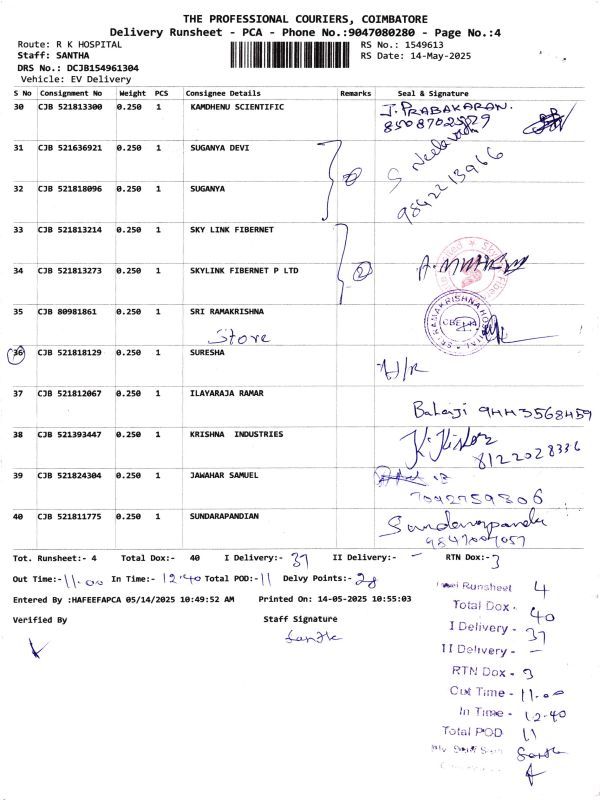 THE PROFESSIONAL COURIERS, COIMBATORE
Delivery Runsheet - PCA - Phone No.:9047080280 - Page No.:4
Route: R K HOSPITAL
RS No.: 1549613
Staff: SANTHA
RS Date: 14-May-2025
DRS No.: DCJB154961304
Vehicle: EV Delivery
S No Consignment No Weight PCS Consignee Details Remarks Seal & Signature
30 CJB 521813300 0.250 1 KAMDHENU SCIENTIFIC J. PRABAKARAN.
31 CJB 521636921 0.250 1 SUGANYA DEVI
9842213966
32 CJB 521818096 0.250 1 SUGANYA
33 CJB 521813214 0.250 1 SKY LINK FIBERNET
34 CJB 521813273 0.250 1 SKYLINK FIBERNET P LTD 2
35 CJB 80981861 0.250 1 SRI RAMAKRISHNA
Store
36 CJB 521818129 0.250 1 SURESHA
37 CJB 521812067 0.250 1 ILAYARAJA RAMAR
Balaji 9443568459
38 CJB 521393447 0.250 1 KRISHNA INDUSTRIES
8122028336
39 CJB 521824304 0.250 1 JAWAHAR SAMUEL
7092759806
40 CJB 521811775 0.250 1 SUNDARAPANDIAN
Tot. Runsheet:- 4 Total Dox:- 40 I Delivery:- 37 II Delivery:- - RTN Dox:- 3
Out Time:- 11.00 In Time:- 12.40 Total POD:- 11 Delvy Points:- 28
Entered By :HAFEEFAPCA 05/14/2025 10:49:52 AM Printed On: 14-05-2025 10:55:03
Verified By Staff Signature
Santha
Runsheet 4
Total Dox - 40
I Delivery - 37
II Delivery - -
RTN Dox - 3
Out Time - 11.00
In Time - 12.40
Total POD 11
Santha